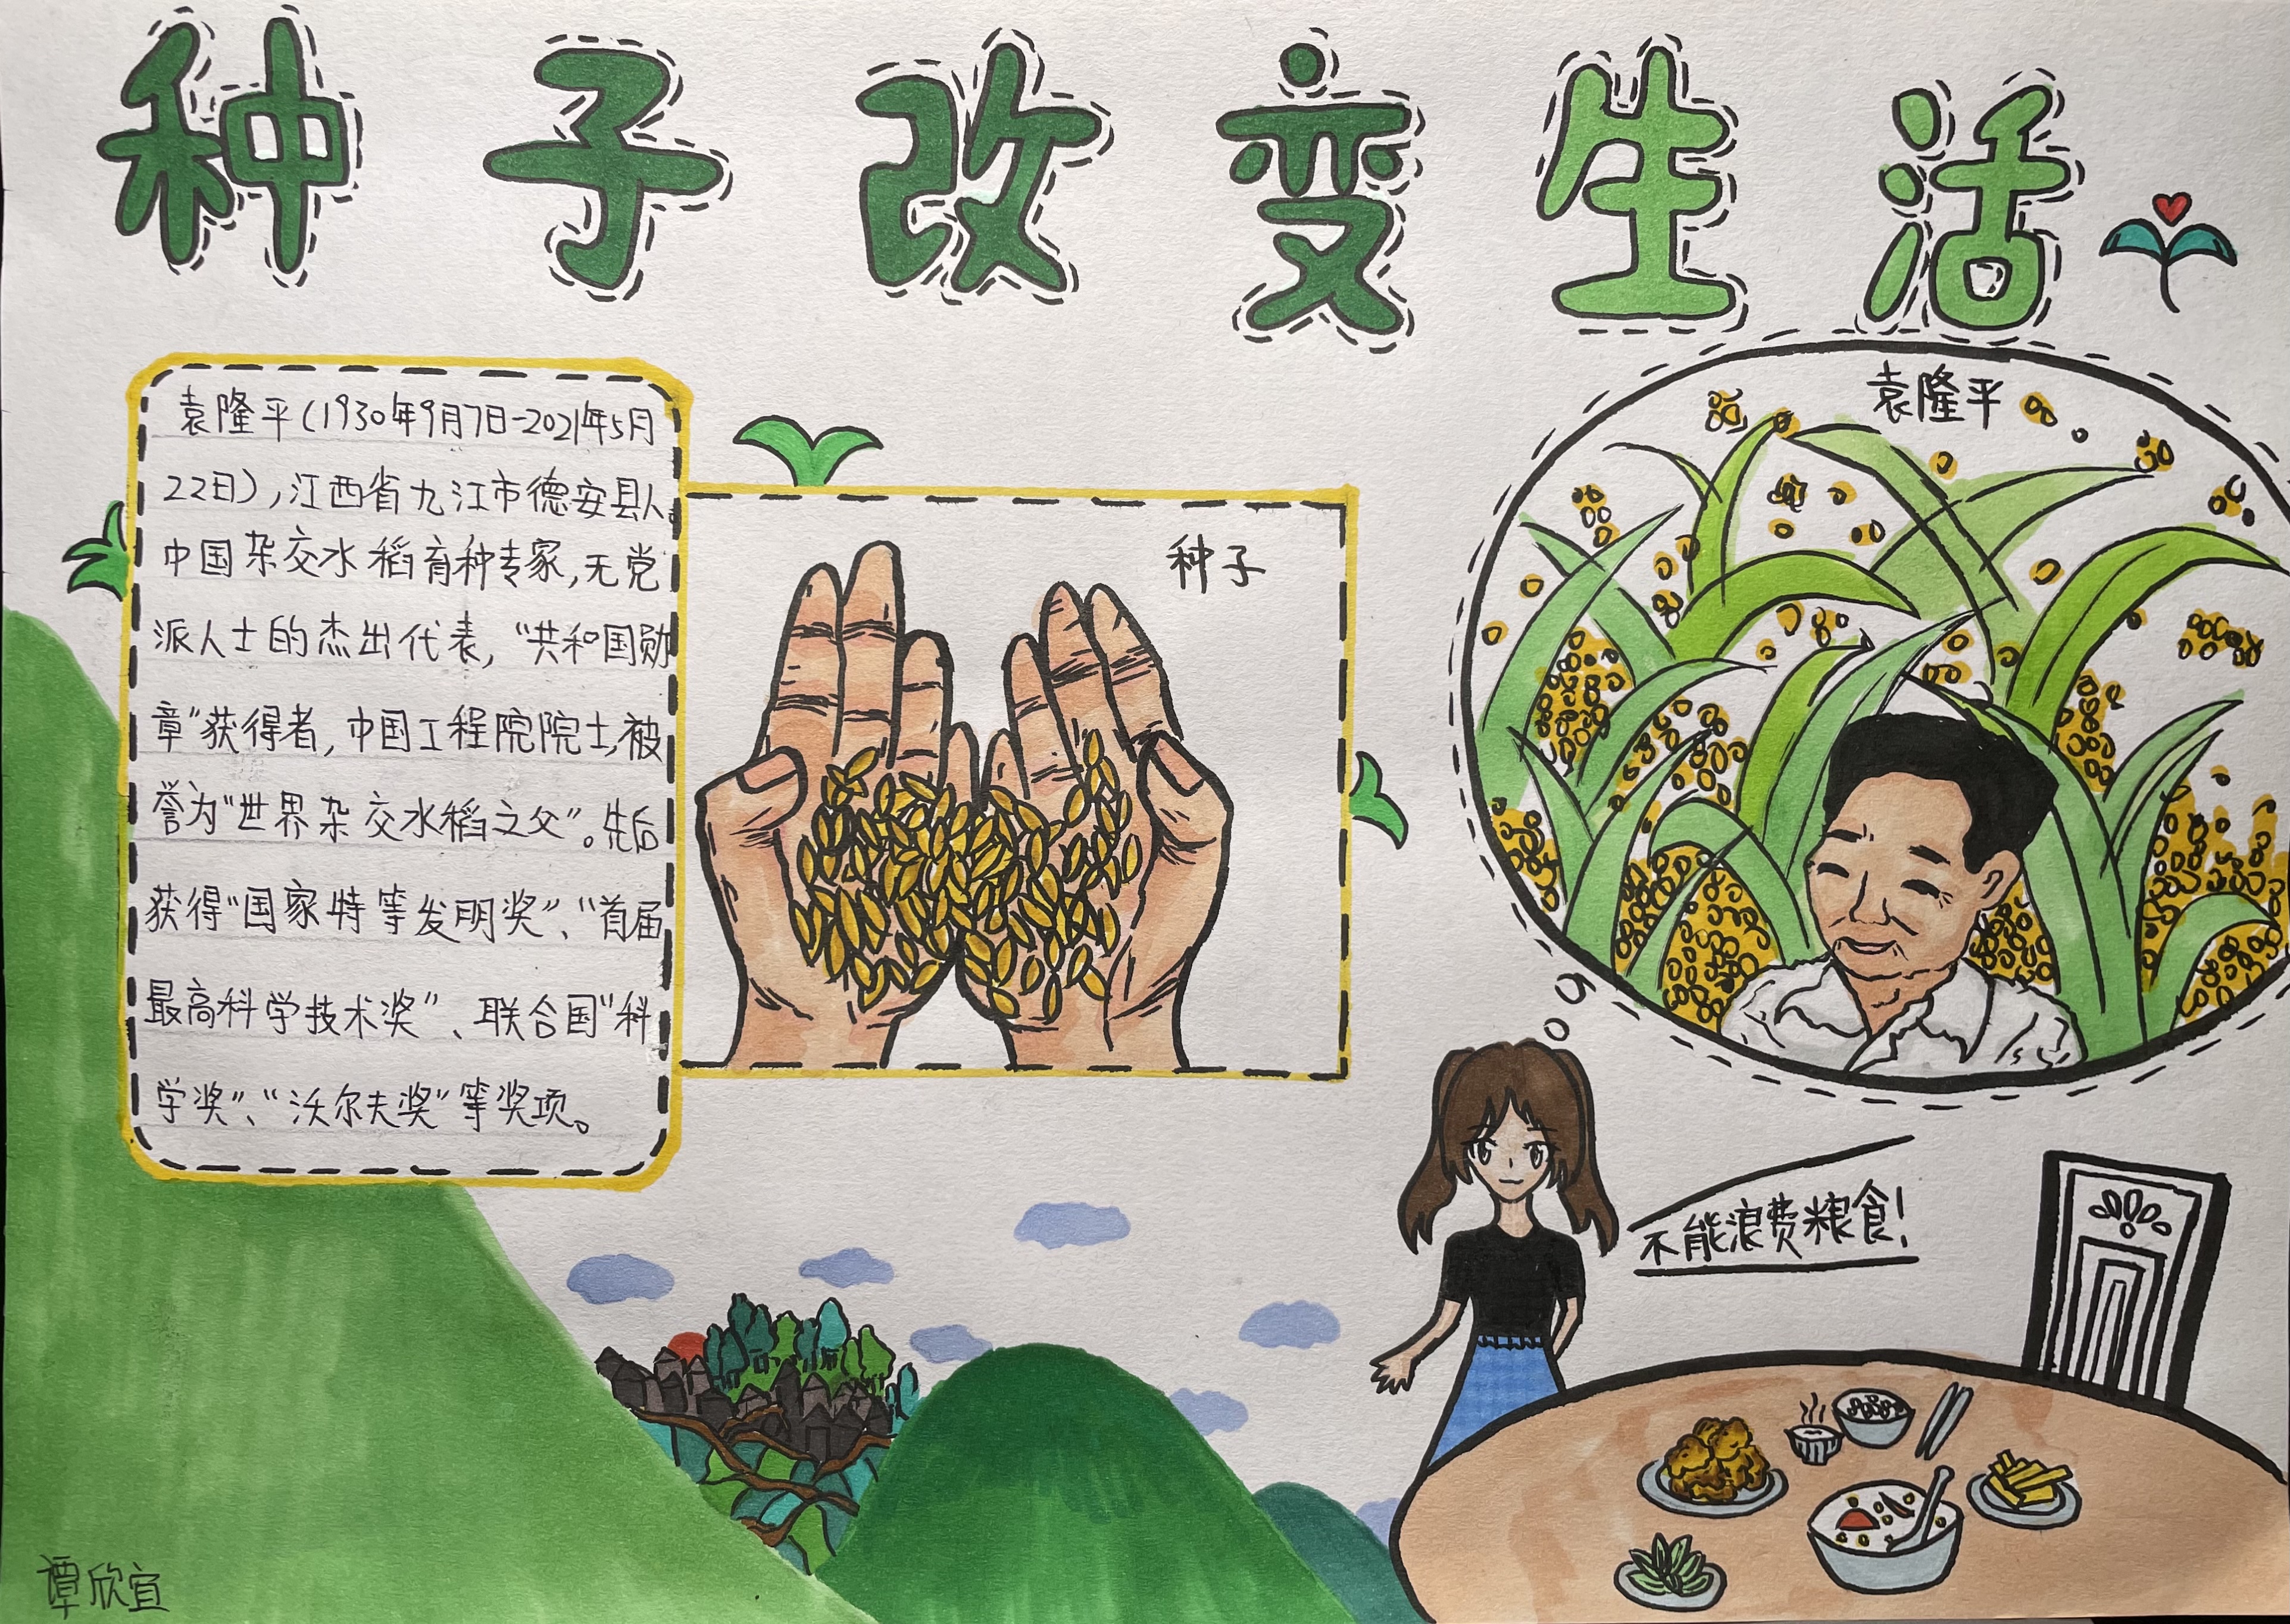 种子改变生活
袁隆平(1930年9月7日-2021年5月
22日),江西省九江市德安县人。
中国杂交水稻育种专家,无党
派人士的杰出代表,“共和国勋
章”获得者,中国工程院院士,被
誉为“世界杂交水稻之父”。先后
获得“国家特等发明奖”、“首届
最高科学技术奖”、联合国“科
学奖”、“沃尔夫奖”等奖项。
种子
袁隆平
不能浪费粮食!
谭欣宜